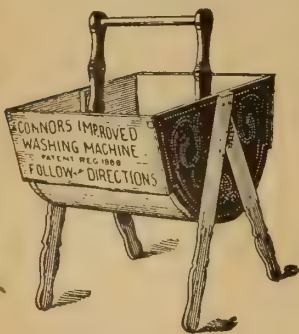 CONNORS IMPROVED
WASHING MACHINE
PATENT REG 1888
FOLLOW DIRECTIONS